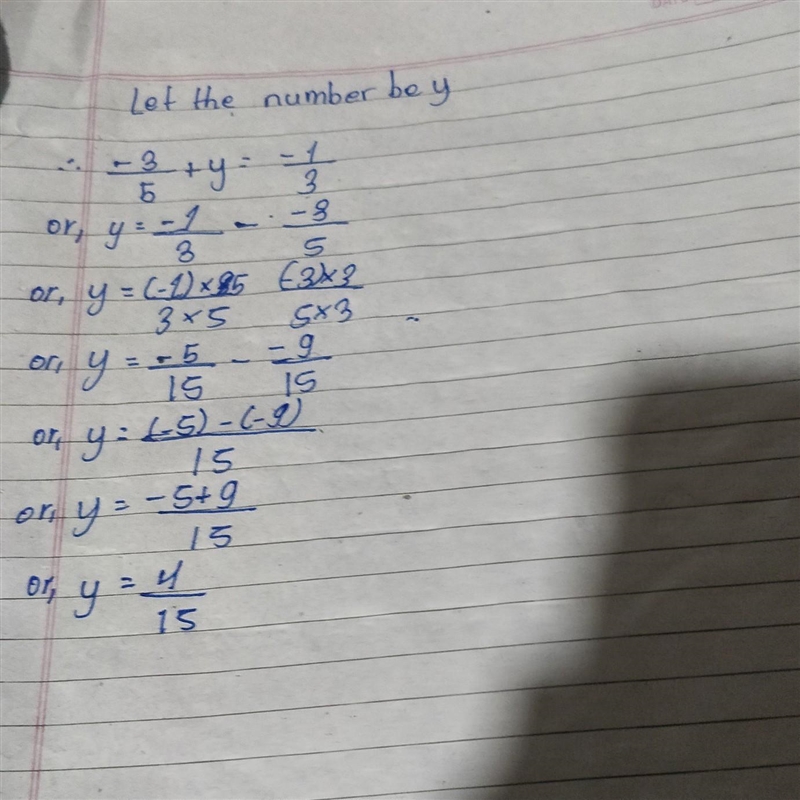 Let the number be y
∴ -3/5 + y = -1/3
or, y = -1/3 - -3/5
or, y = (-1)×5/3×5 (-3)×3/5×3
or, y = -5/15 - -9/15
or, y = (-5)-(-9)/15
or, y = -5+9/15
or, y = 4/15